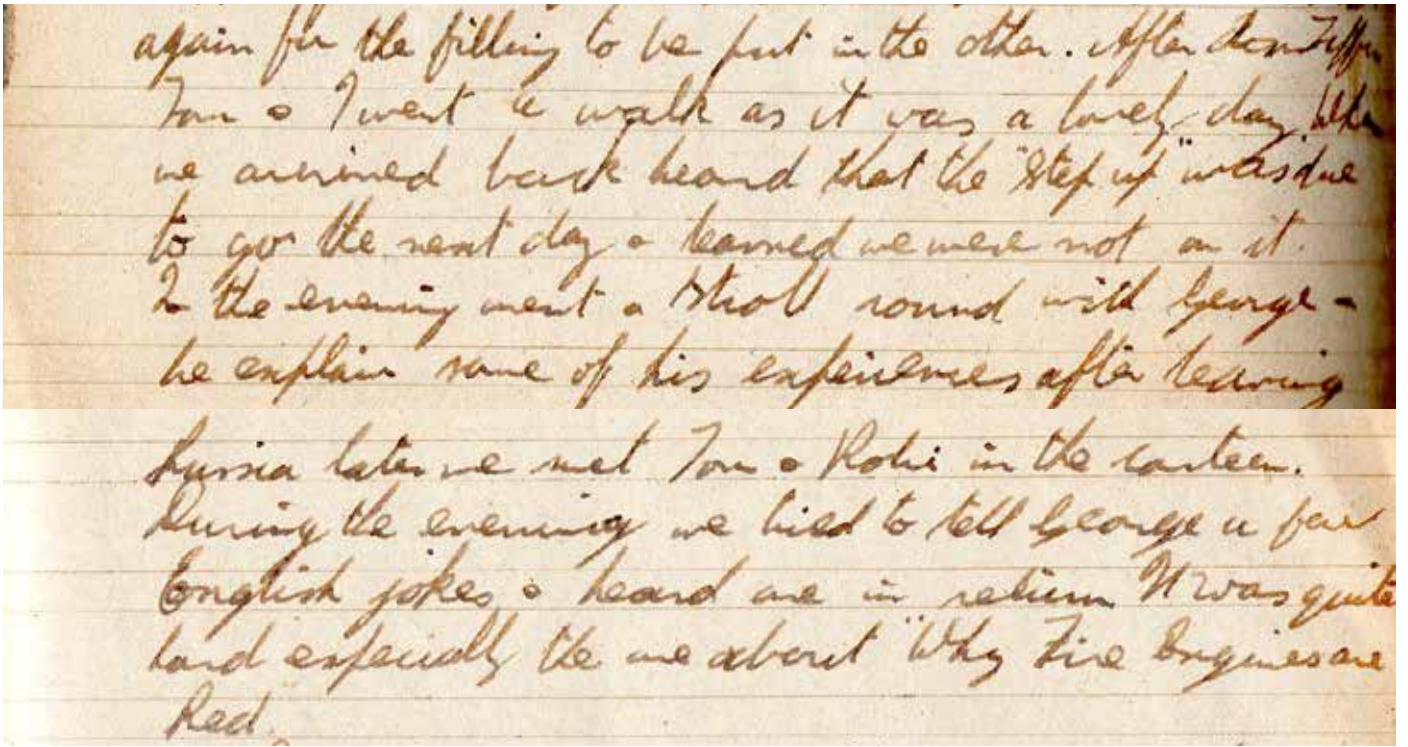 again for the filling to be put in the other. After Tiffin
Tom & I went a walk as it was a lovely day. When
we arrived back heard that the "step up" was due
to go the next day & learned we were not on it.
In the evening went a stroll round with George &
he explain some of his experiences after leaving
Russia later we met Tom & Robi in the canteen.
During the evening we tried to tell George a few
English jokes & heard one in return It was quite
hard especially the one about "Why Fire Engines are
Red.